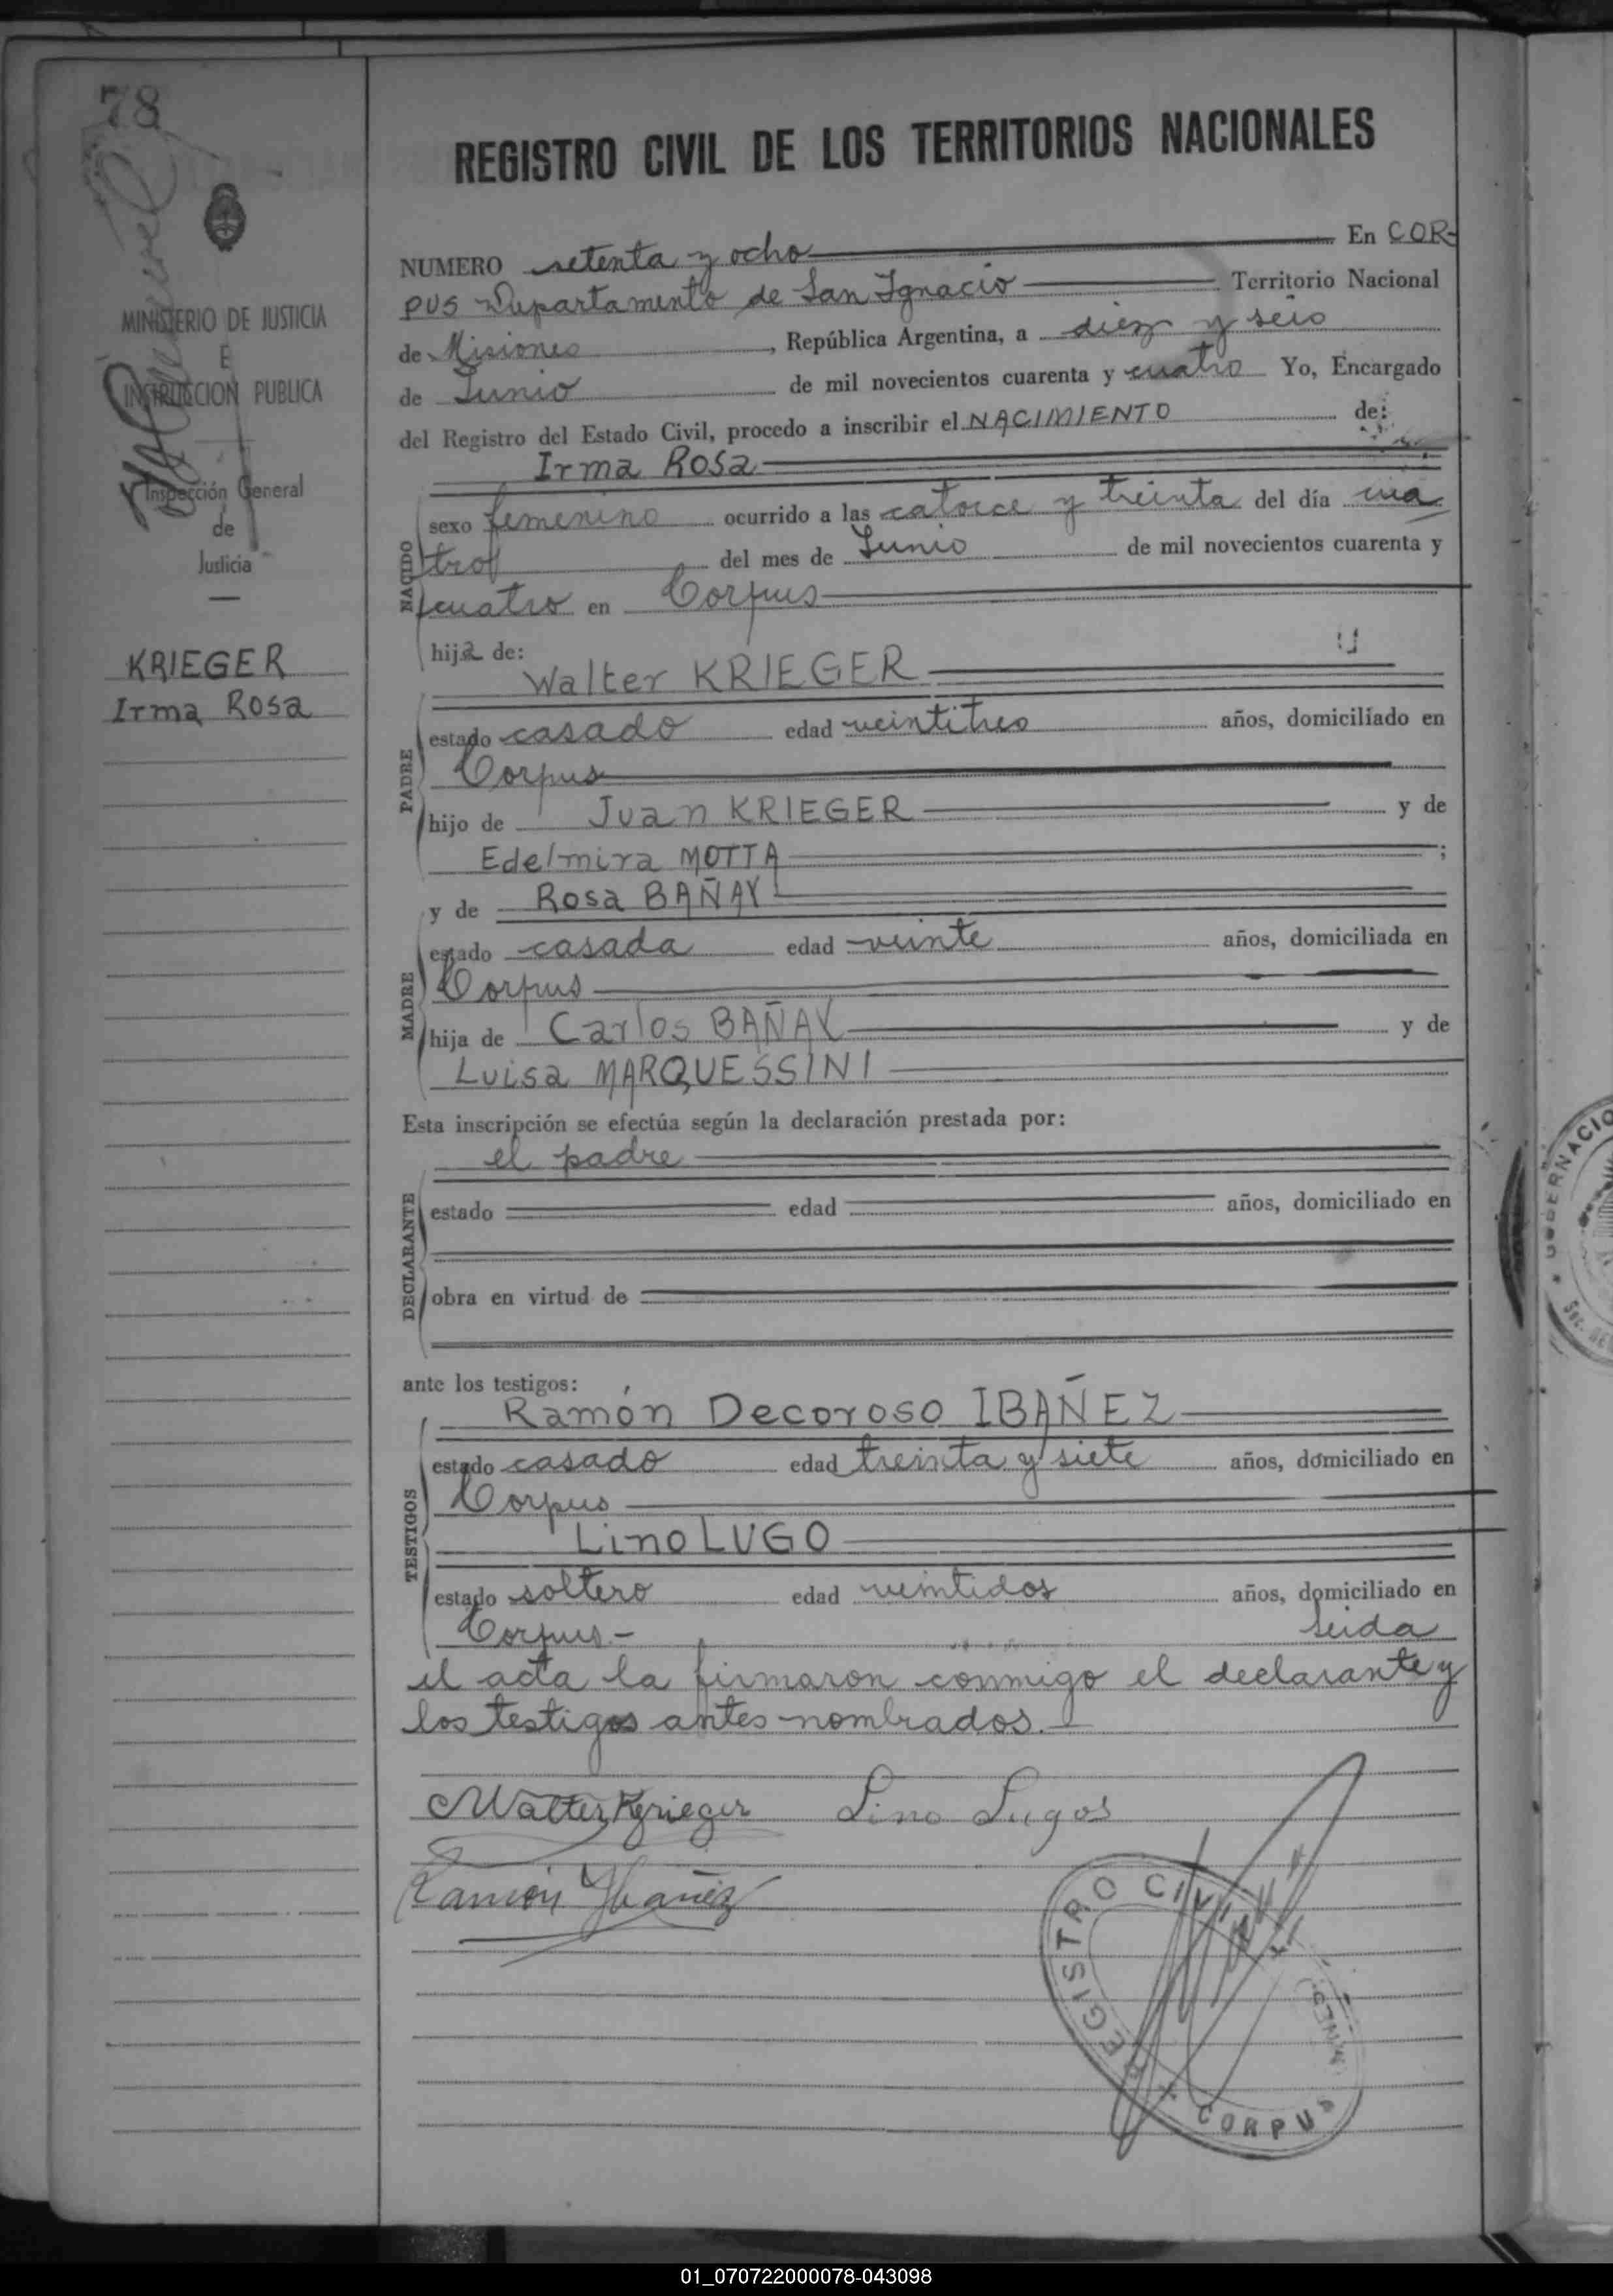 78
MINISTERIO DE JUSTICIA
E
INSTRUCCION PUBLICA
Inspección General
de
Justicia
KRIEGER
Irma Rosa
REGISTRO CIVIL DE LOS TERRITORIOS NACIONALES
NUMERO setenta y ocho En COR-
PUS Departamento de San Ignacio Territorio Nacional
de Misiones, República Argentina, a diez y seis
de Junio de mil novecientos cuarenta y cuatro Yo, Encargado
del Registro del Estado Civil, procedo a inscribir el NACIMIENTO de:
Irma Rosa
NACIDO
sexo femenino ocurrido a las catorce y treinta del día cua
tro del mes de Junio de mil novecientos cuarenta y
cuatro en Corpus
hija de:
Walter KRIEGER
PADRE
estado casado edad veintitres años, domiciliado en
Corpus
hijo de Juan KRIEGER y de
Edelmira MOTTA ;
y de Rosa BAÑAY
MADRE
estado casada edad veinte años, domiciliada en
Corpus
hija de Carlos BAÑAY y de
Luisa MARQUESSINI
Esta inscripción se efectúa según la declaración prestada por:
el padre
DECLARANTE
estado edad años, domiciliado en
obra en virtud de
ante los testigos:
Ramón Decoroso IBAÑEZ
TESTIGOS
estado casado edad treinta y siete años, domiciliado en
Corpus
Lino LUGO
estado soltero edad veintidos años, domiciliado en
Corpus.- Leida
el acta la firmaron conmigo el declarante y
los testigos antes nombrados.-
Walter Krieger Lino Lugos
Ramón Ybañez
REGISTRO CIVIL
CORPUS
GOBERNACIO
01_070722000078-043098